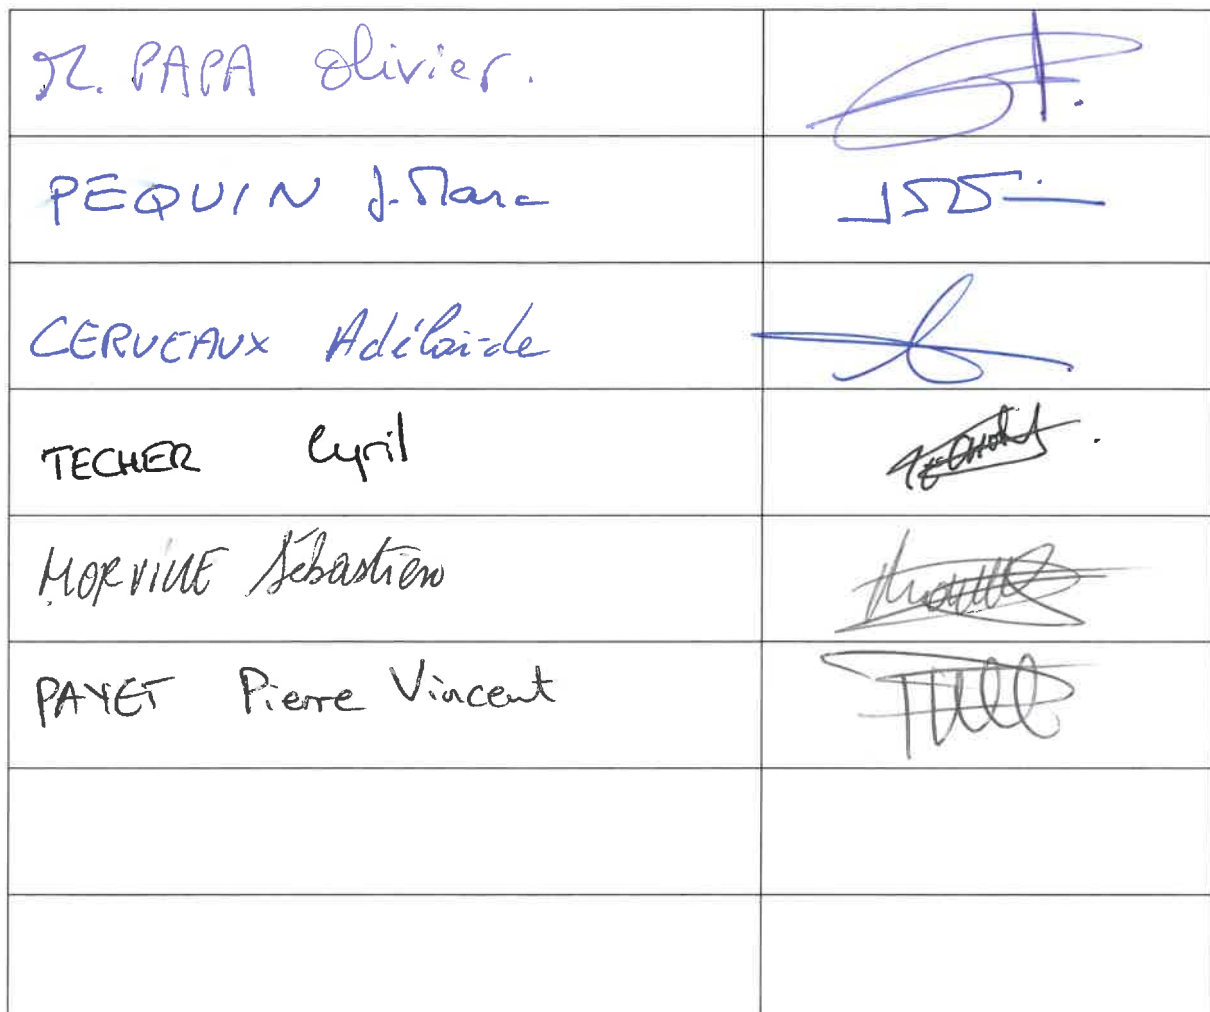 M. PAPA Olivier.
PEQUIN J-Marc
CERVEAUX Adélaïde
TECHER Cyril
MORVILLE Sébastien
PAYET Pierre Vincent